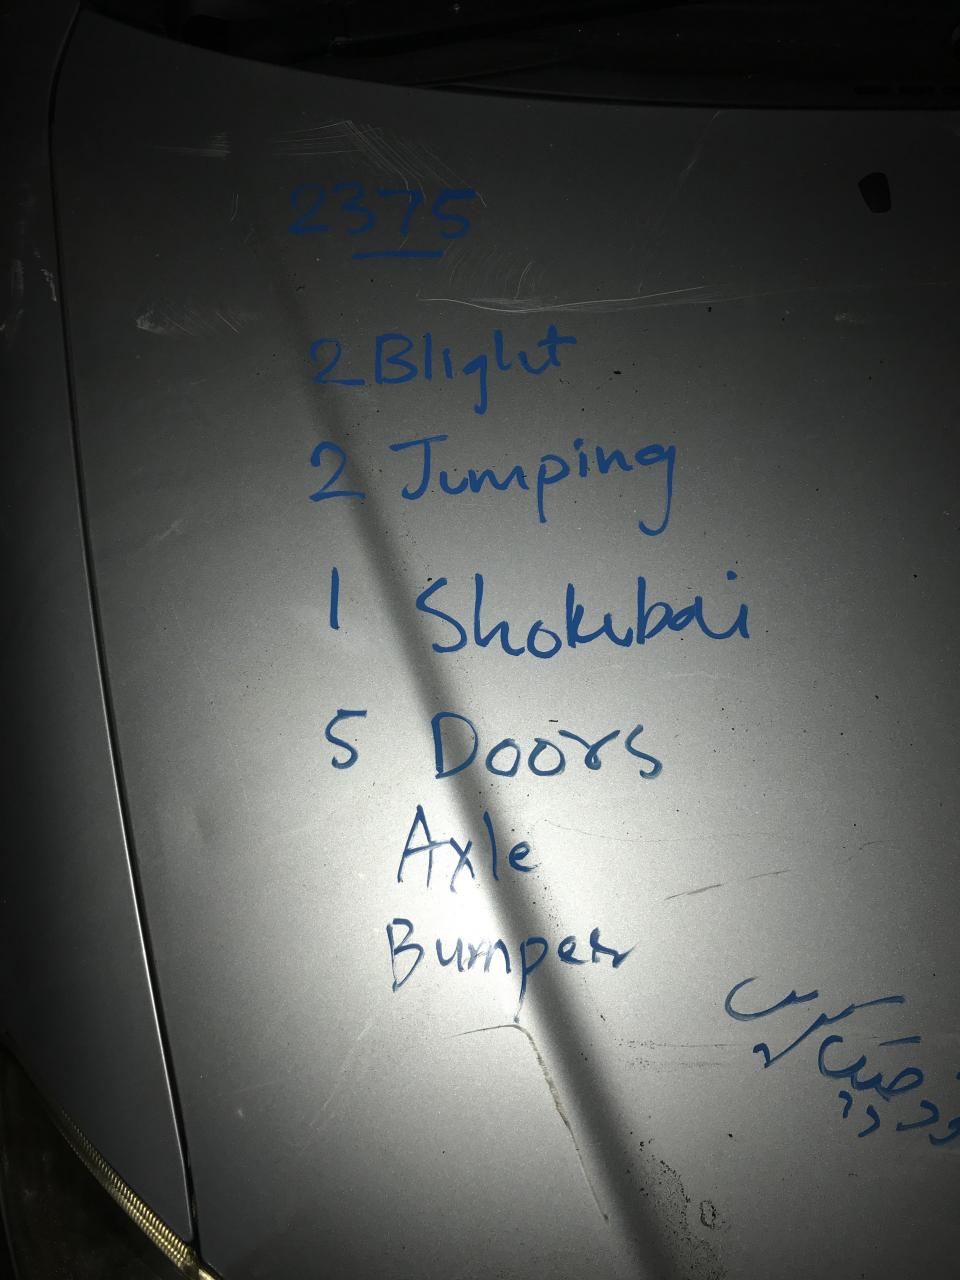 2375
2 Blight
2 Jumping
1 Shokubai
5 Doors
Axle
Bumper